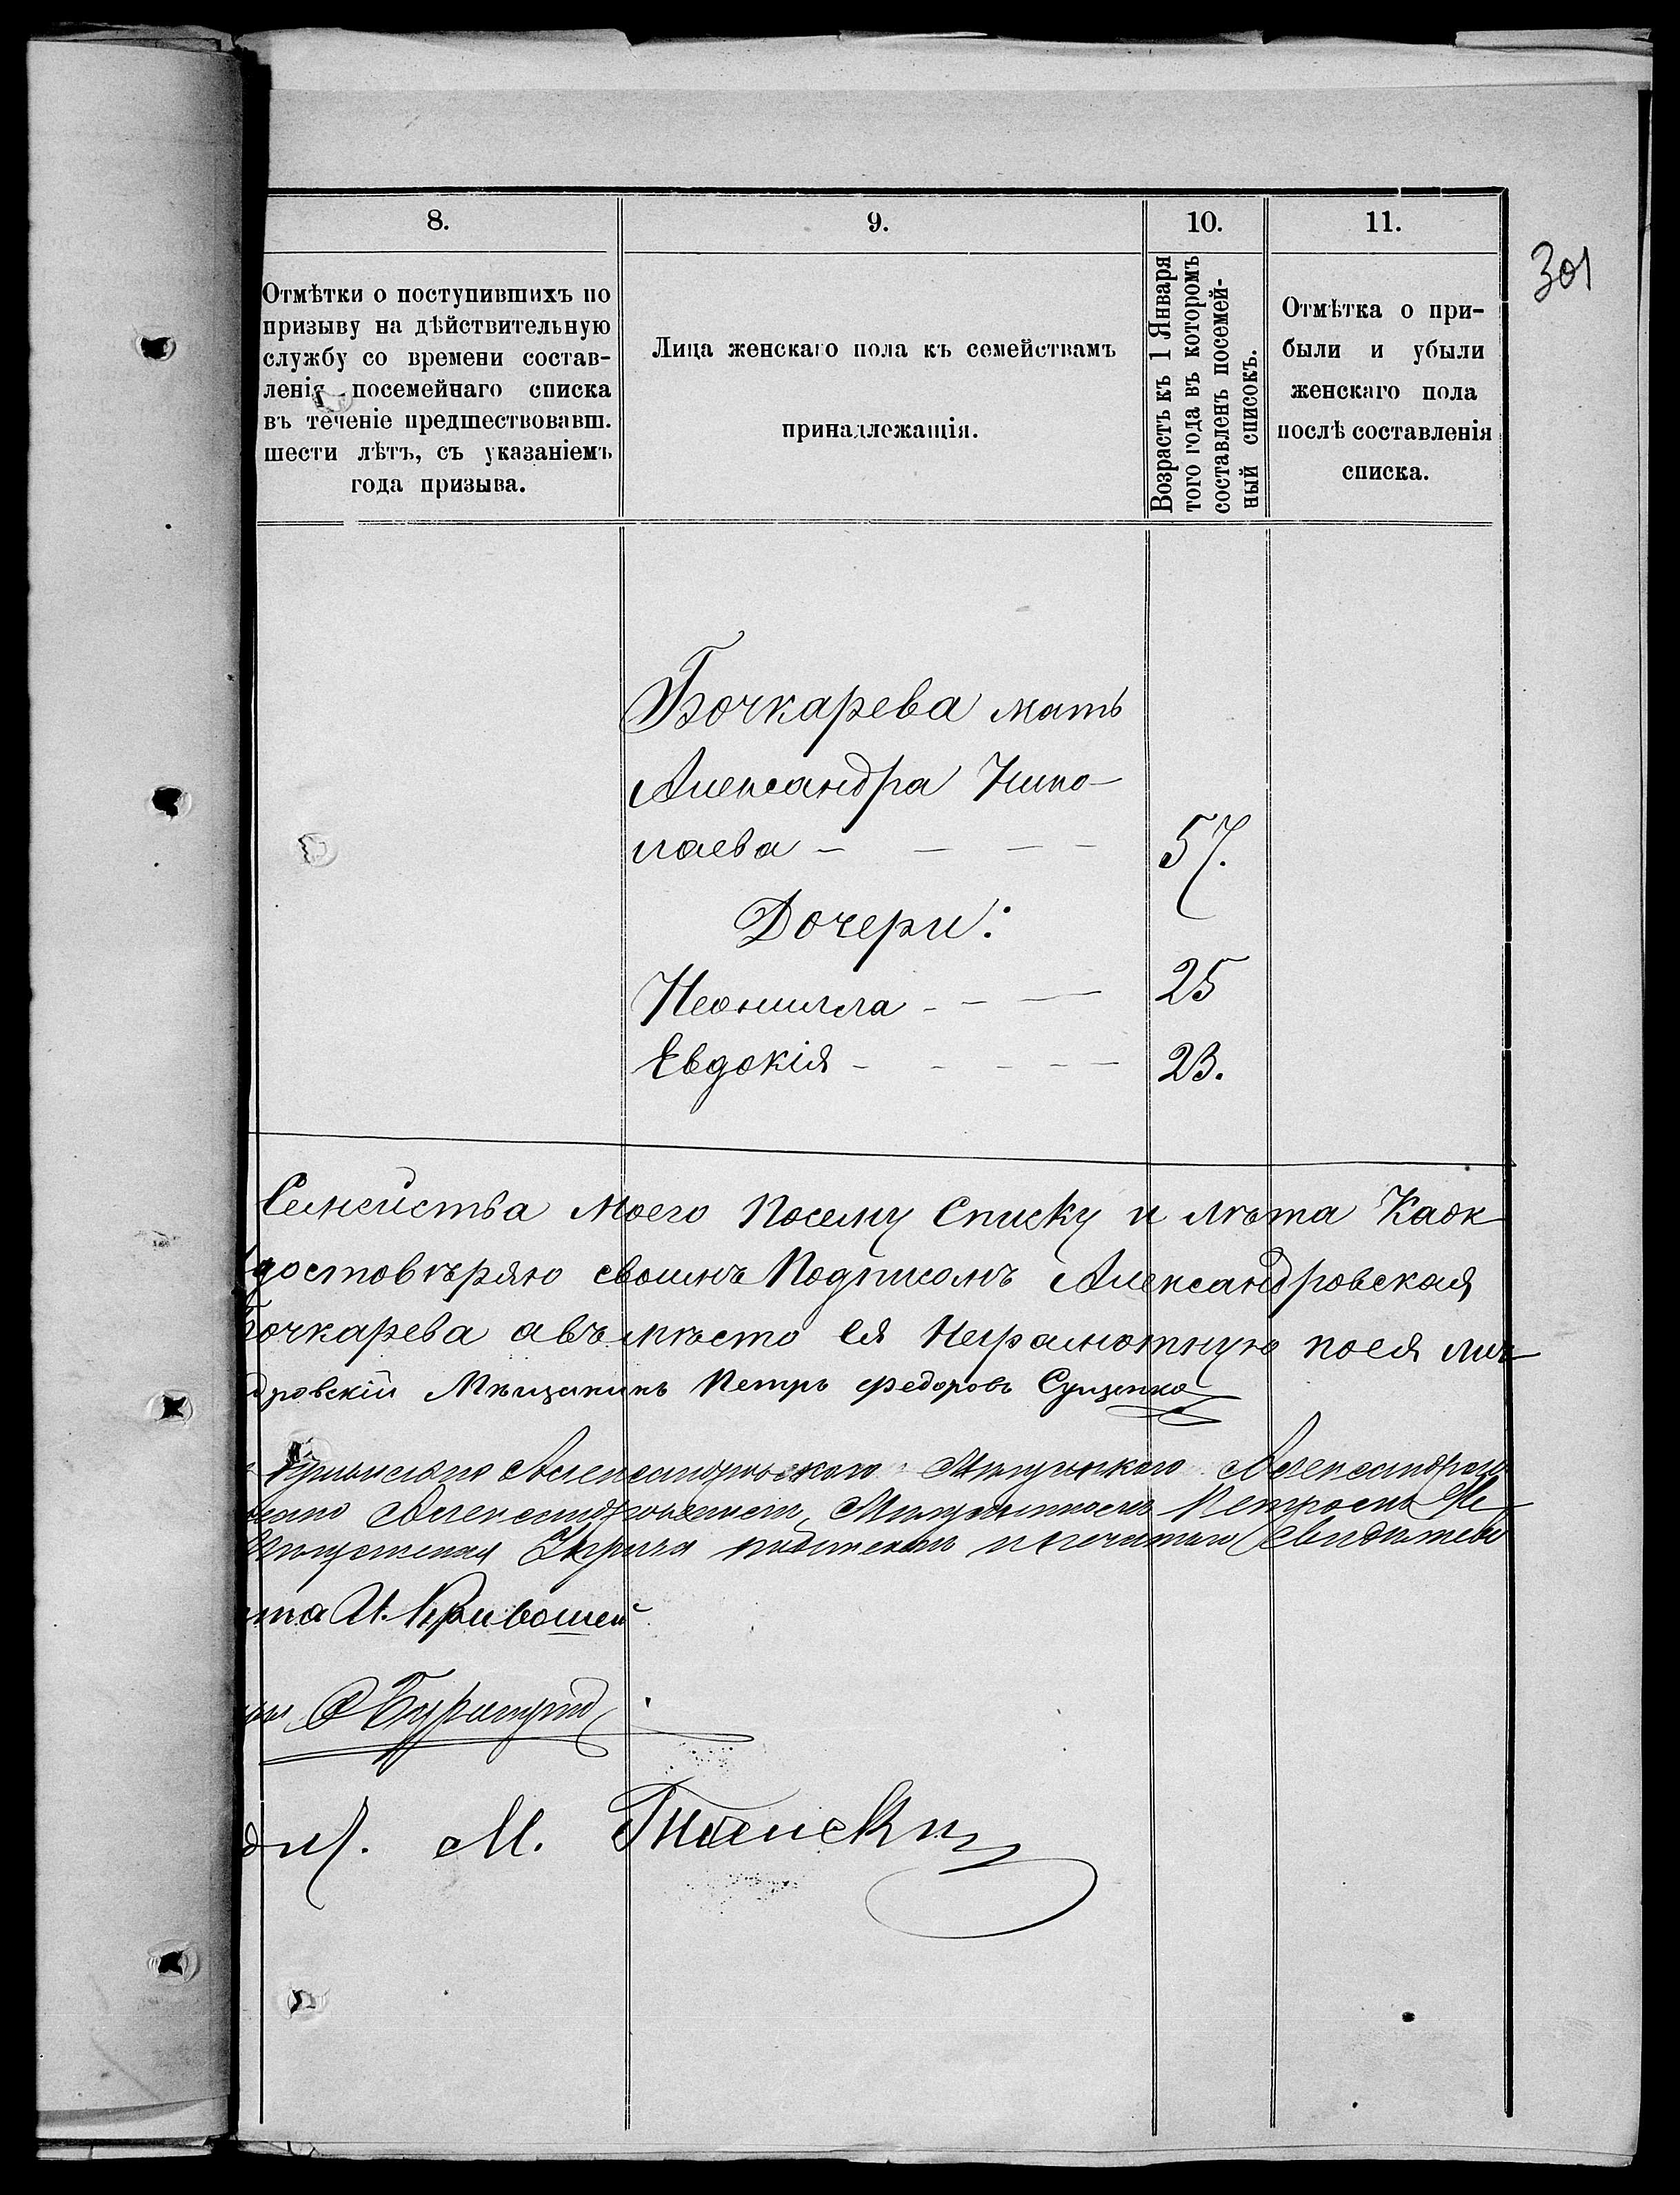 8.
9.
10.
11.
301
Отмѣтки о поступившихъ по
призыву на дѣйствительную
службу со времени состав-
ленія посемейнаго списка
въ теченіе предшествовавш.
шести лѣтъ, съ указаніемъ
года призыва.
Лица женскаго пола къ семействамъ
принадлежащія.
Возрастъ къ 1 Января
того года въ которомъ
составленъ посемей-
ный списокъ.
Отмѣтка о при-
были и убыли
женскаго пола
послѣ составленія
списка.
Бочкарева мать
Александра Нико-
лаева - - - - 57.
Дочери:
Неонилла - - - 25
Евдокія - - - - - 23.
Семейства моего Посему Списку и лѣта Каж
достовѣряю своимъ Подписомъ Александровская
Бочкарева авъмѣсто ея Неграмотную поея лич
дровскій Мѣщанинъ Петръ Федоровъ Сущенко
Александровскаго Мѣщанскаго
Мѣщаниномъ Петромъ Фе
Управа подписомъ и печатью Свидѣтель
та И. Кривошей
М.